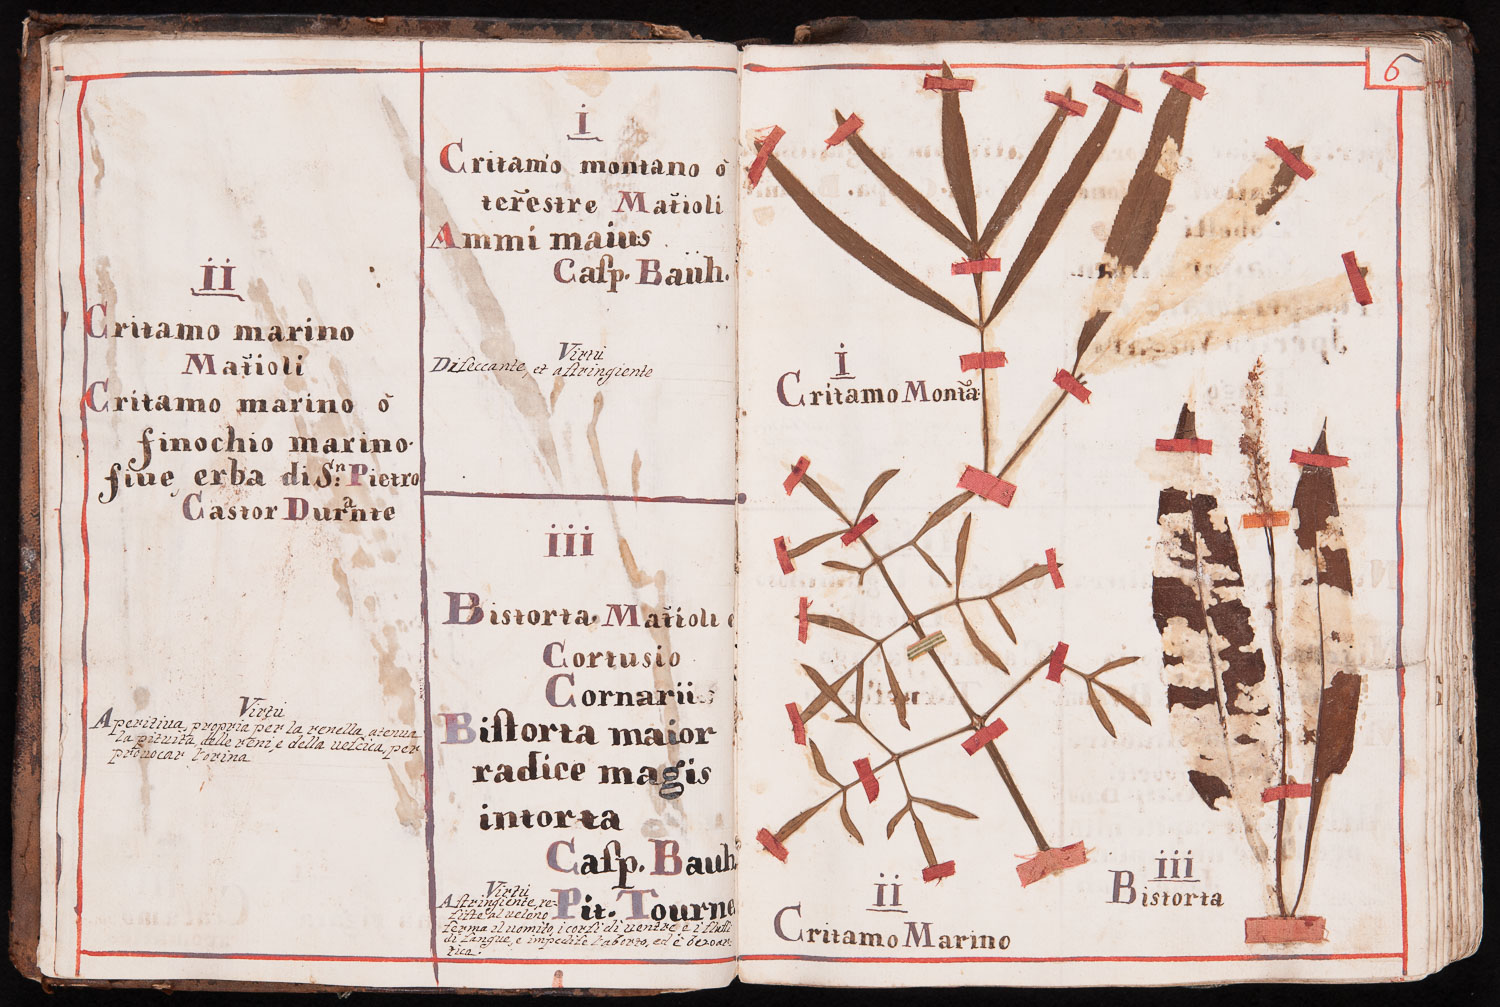 i
Critamo montano ò
terestre Matioli
Ammi maius
Casp. Bauh.
Virtù
Diseccante, et astringiente
ii
Critamo marino
Matioli
Critamo marino ò
finochio marino
siue erba di Sn. Pietro
Castor Durante
Virtù
Aperitiua, propria per la renella, atenua
la pituita, delle reni, e della uesica, per
prouocar l'orina
iii
Bistorta. Matioli e
Cortusio
Cornarii
Bistorta maior
radice magis
intorta
Casp. Bauh
Pit. Tourne
Virtù
Astringiente, re-
siste al ueleno
ferma il uomito, i corsi di uentre, e i flussi
di sangue, e impedise l'aborto, ed è bezoar-
tica.
6
i
Critamo Monta.
ii
Critamo Marino
iii
Bistorta